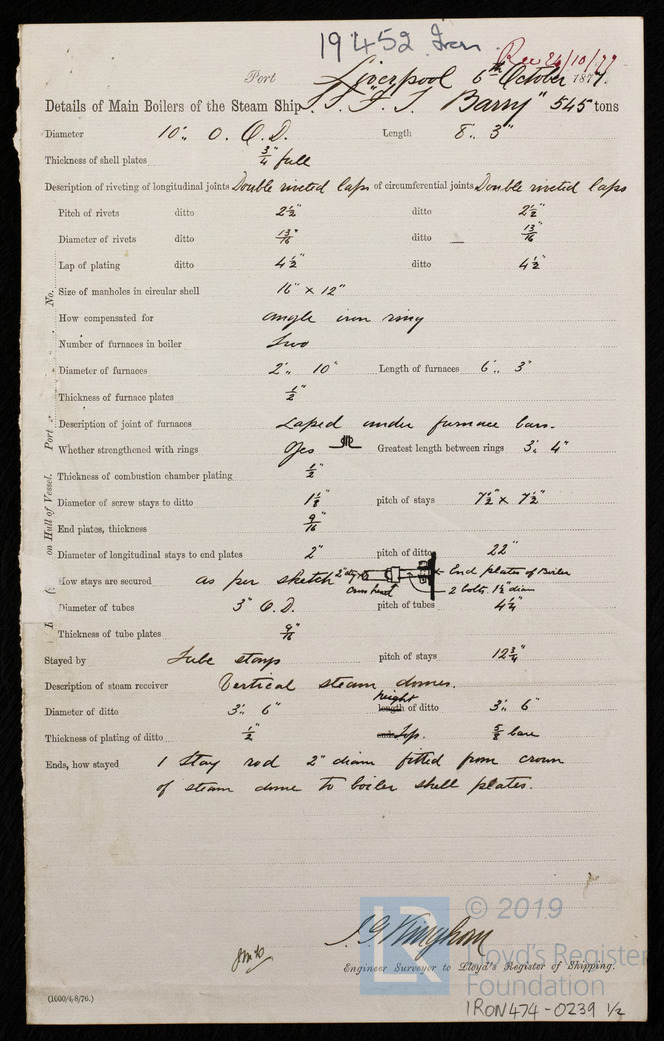 19452 Iron
Rec 26/10/77
Port Liverpool 6th October 1877.
Details of Main Boilers of the Steam Ship S.S. "F. T. Barry" 545 tons
Diameter 10'.. 0. O.D. Length 8.. 3"
Thickness of shell plates 3/4" full
Description of riveting of longitudinal joints Double riveted laps of circumferential joints Double riveted laps
Pitch of rivets ditto 2 1/2" ditto 2 1/2"
Diameter of rivets ditto 13/16" ditto 13/16"
Lap of plating ditto 4 1/2" ditto 4 1/2"
Size of manholes in circular shell 16" x 12"
How compensated for angle iron ring
Number of furnaces in boiler Two
Diameter of furnaces 2'.. 10" Length of furnaces 6'.. 3"
Thickness of furnace plates 1/2"
Description of joint of furnaces Laped under furnace bars.
Whether strengthened with rings Yes Greatest length between rings 3'.. 4"
Thickness of combustion chamber plating 1/2"
Diameter of screw stays to ditto 1 1/8" pitch of stays 7 1/2" x 7 1/2"
End plates, thickness 9/16"
Diameter of longitudinal stays to end plates 2" pitch of ditto 22"
How stays are secured as per sketch End plates of Boiler
cross head 2 bolts. 1 1/2" diam
Diameter of tubes 3" O.D. pitch of tubes 4 1/4"
Thickness of tube plates 9/16"
Stayed by Tube stays pitch of stays 12 3/4"
Description of steam receiver Vertical steam domes.
Diameter of ditto 3'.. 6" length height of ditto 3'.. 6"
Thickness of plating of ditto 1/2" ends top. 5/8" bare
Ends, how stayed 1 Stay rod 2" diam fitted from crown
of steam dome to boiler shell plates.
Port No.
on Hull of Vessel.
J. G. Kingham
Engineer Surveyor to Lloyd's Register of Shipping.
(1000/4/8/76.)
LR
© 2019
Lloyd's Register
Foundation
IRON474-0239 1/2